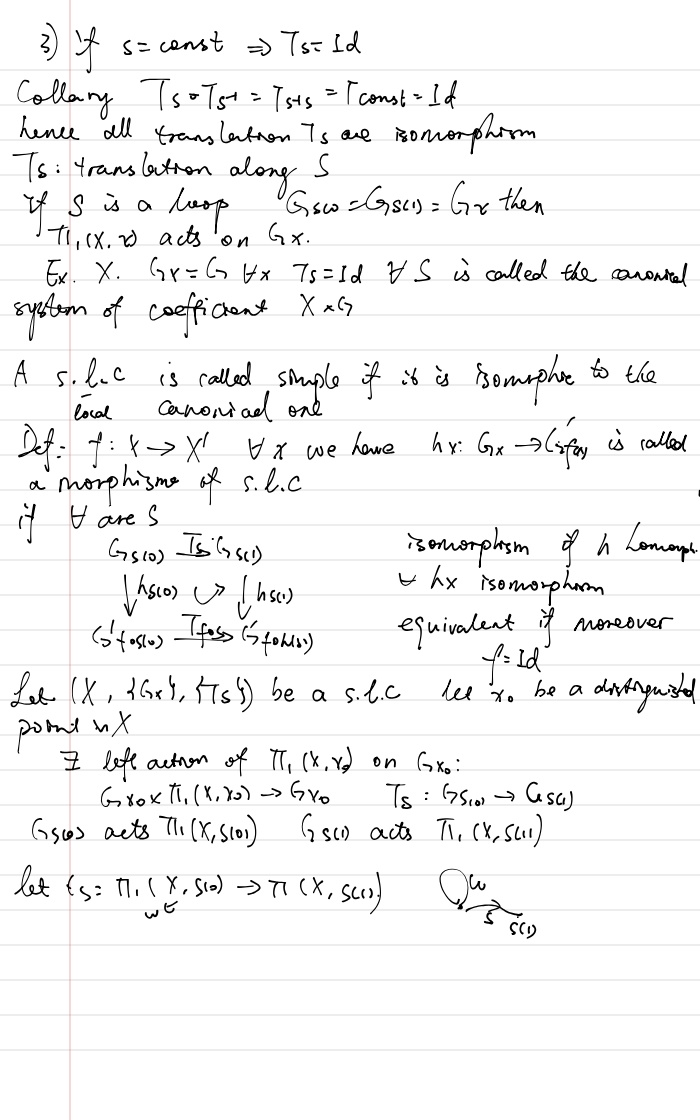 3) If s = const ⇒ Ts = Id
Collary Ts ∘ Ts⁻¹ = Ts⁻¹s = Tconst = Id
hence all translation Ts are isomorphism
Ts: translation along S
If S is a loop Gs(0) = Gs(1) = Gx then
π₁(X, x) acts on Gx.
Ex. X. Gx = G ∀x Ts = Id ∀S is called the canonical
system of coefficient X × G
A s.l.c is called simple if it is isomorphic to the
local canonical one
Def: f: X → X' ∀x we have hx: Gx → G'f(x) is called
a morphisme of s.l.c
if ∀ arc S
Gs(0) Ts Gs(1) isomorphism if h homomorph.
↓ hs(0) ↓ hs(1) ∀ hx isomorphism
G'f∘s(0) Tf∘s G'f∘s(1) equivalent if moreover
f = Id
Let (X, {Gx}, {Ts}) be a s.l.c let x₀ be a distinguished
point in X
∃ left action of π₁(X, x₀) on Gx₀:
Gx₀ × π₁(X, x₀) → Gx₀ Ts: Gs(0) → Gs(1)
Gs(0) acts π₁(X, s(0)) Gs(1) acts π₁(X, s(1))
let ts: π₁(X, s(0)) → π(X, s(1)) w
w ∈ s s(1)